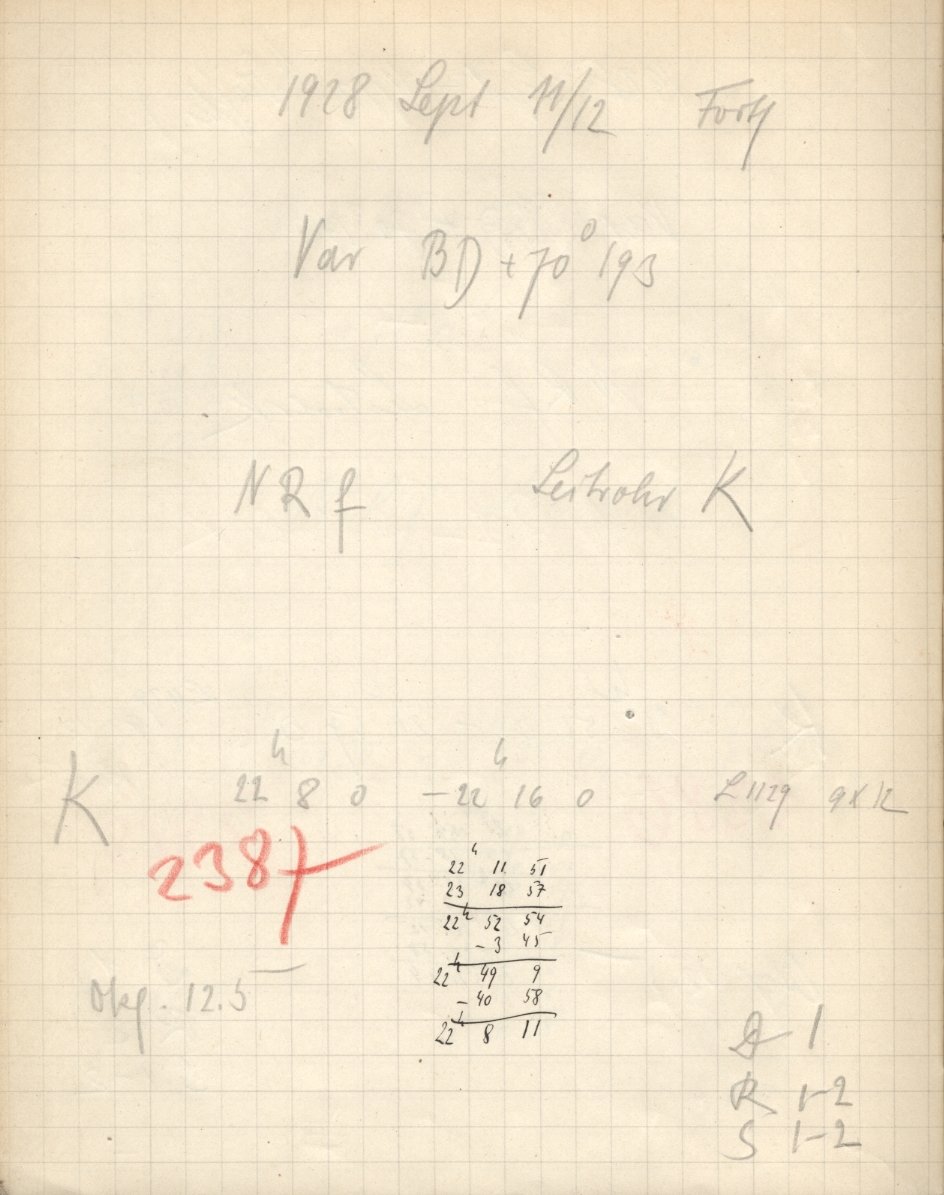 1928 Sept 11/12
Var BD +70° 193
NRf Leitrohr K
K 22ʰ 8 0 – 22ʰ 16 0 L1129 9x12
2387
22ʰ 11 51
23 18 57
22ʰ 52 54
-3 45
22ʰ 49 9
-40 58
22ʰ 8 11
12.5
D 1
R 1-2
S 1-2